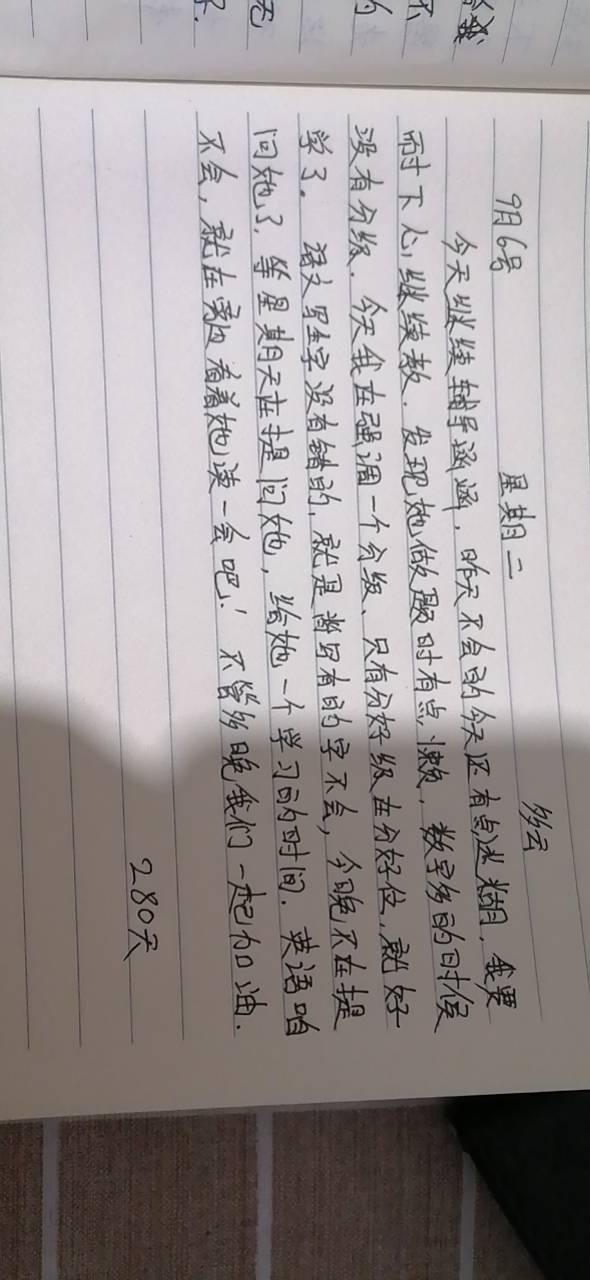 9月6号 星期二 多云
今天继续辅导涵涵，昨天不会的今天还有点迷糊，我要
耐下心，继续教．发现她做题时有点懒，数字多的时候
没有分级．今天我在强调一个分级、只有分好级在分好位，就好
学了．语文写生字没有错的，就是当只有的字不会，今晚不在提
问她了．等星期天在提问她，给她一个学习的时间．英语咱
不会，就在旁边看着她读一会吧！不管多晚我们一起加油．
280天